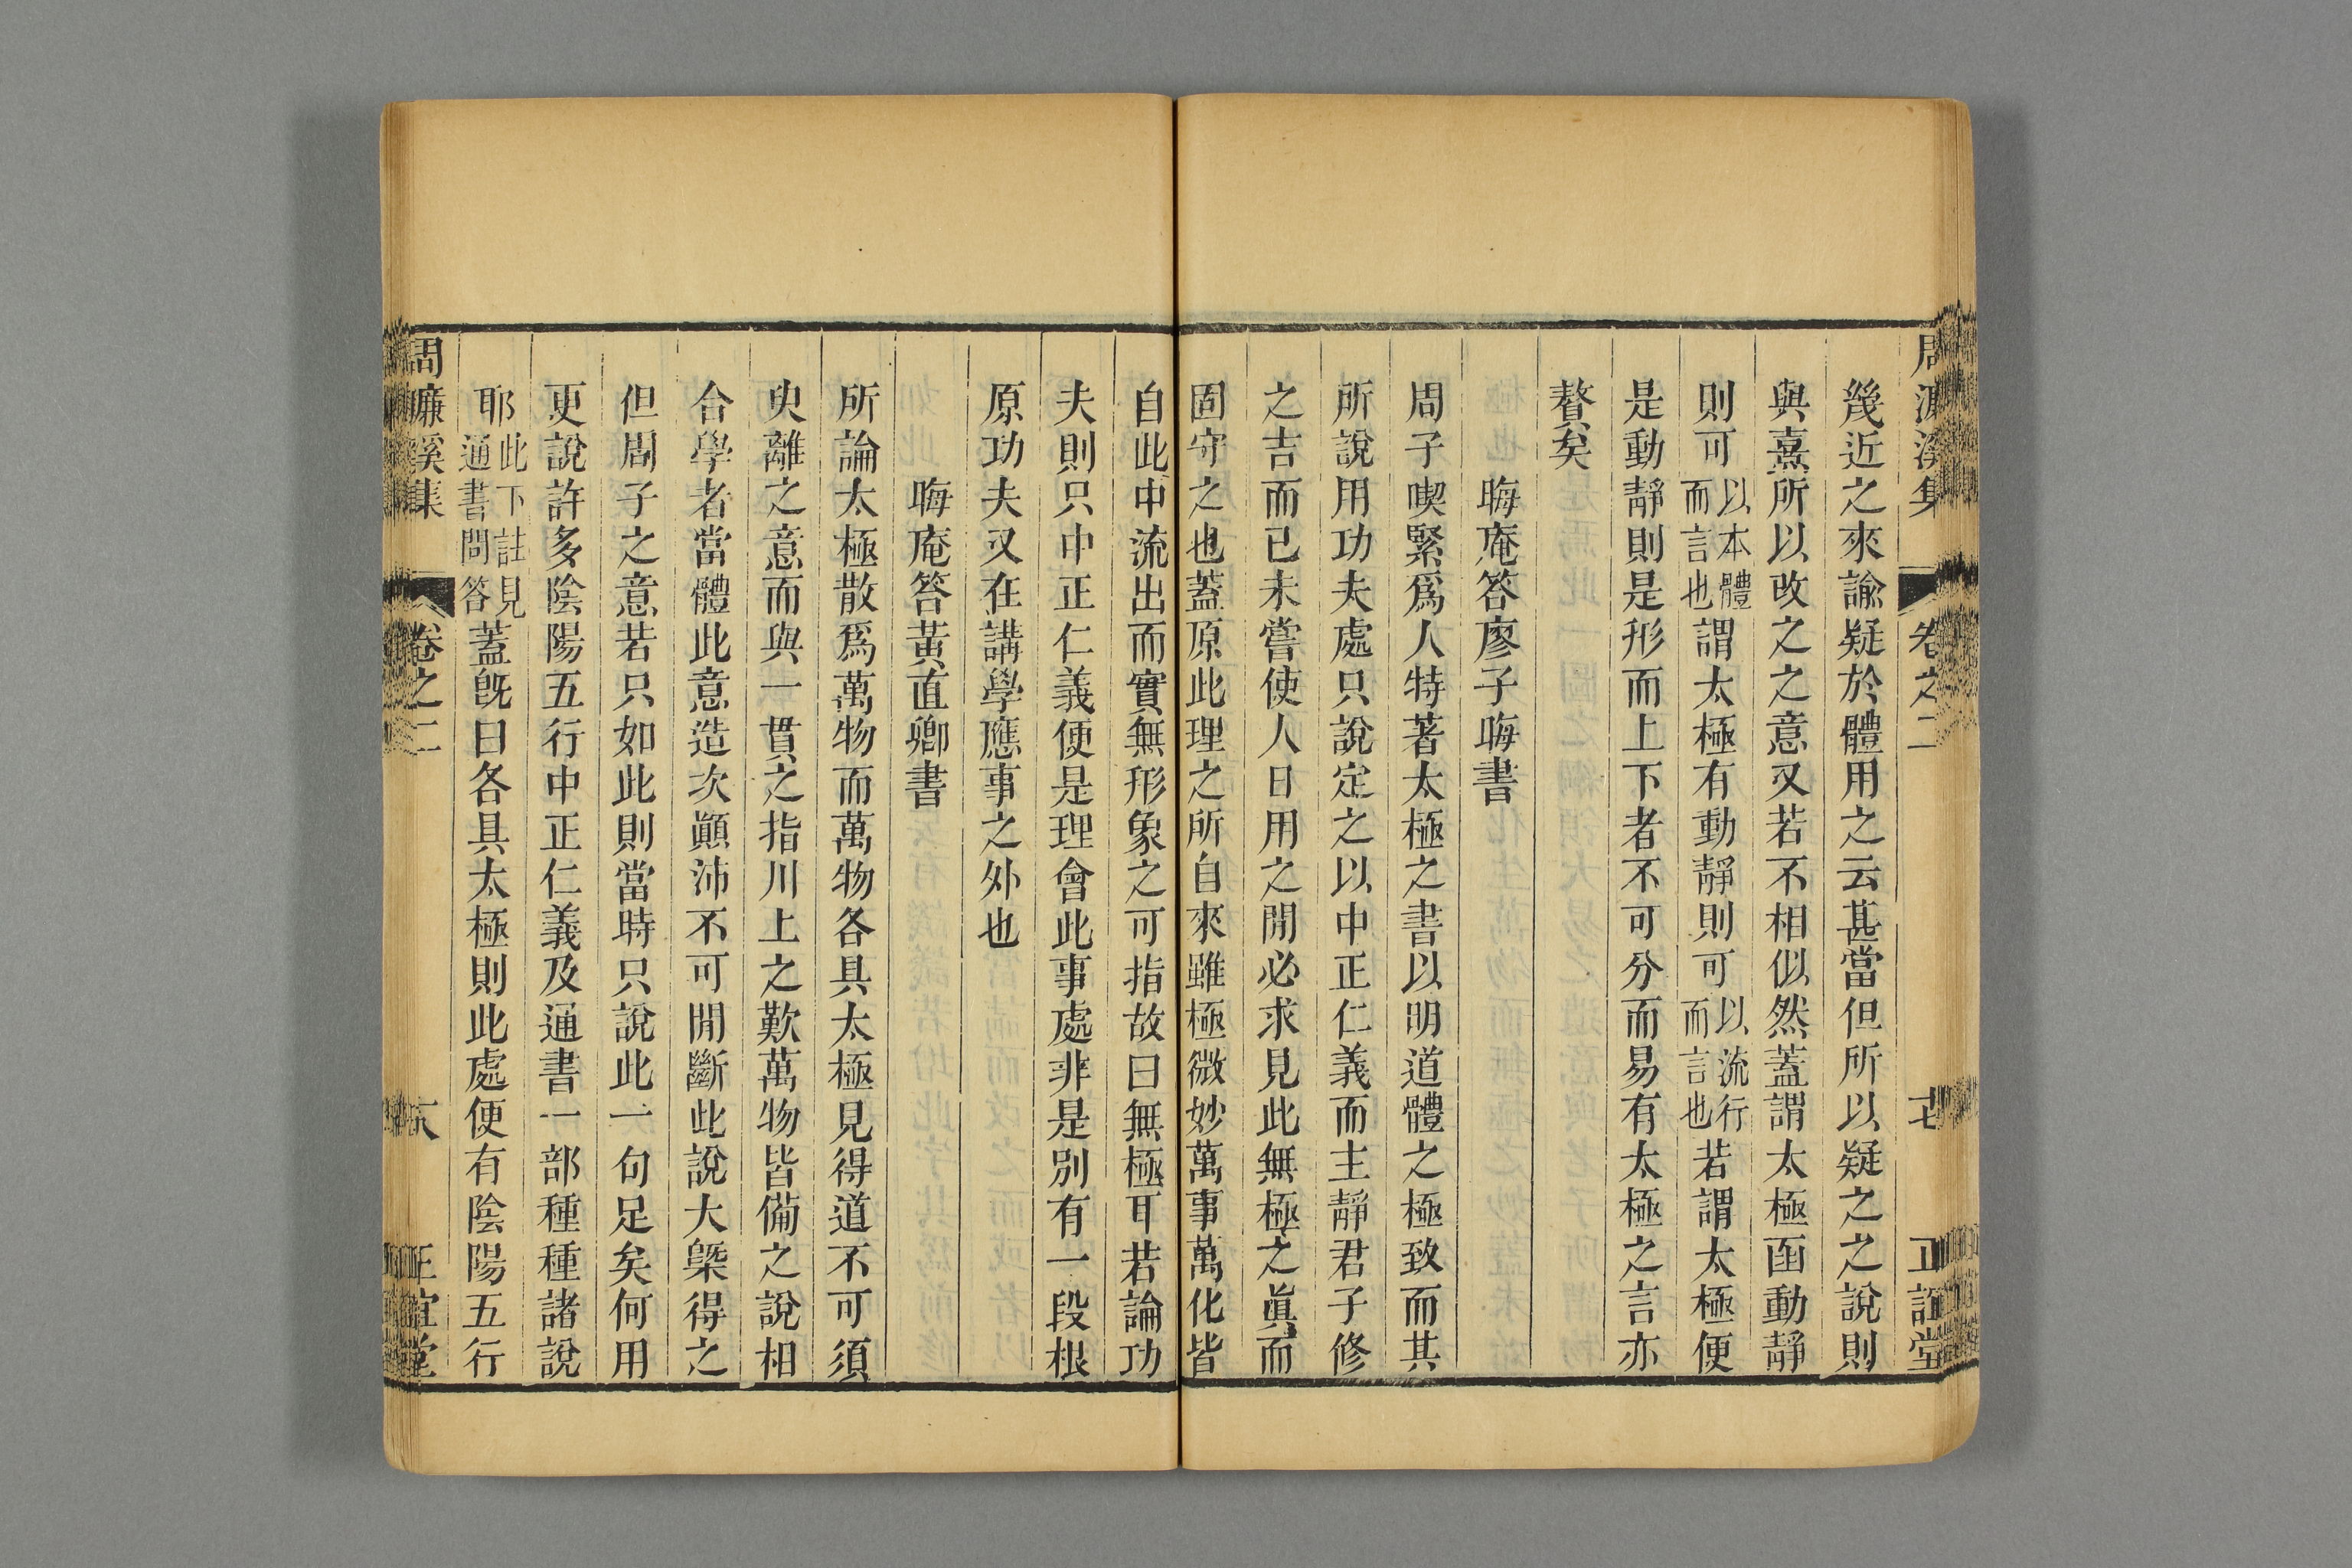 周濂溪集 卷之二 十七 正誼堂
幾近之來諭疑於體用之云甚當但所以疑之之說則
與熹所以改之之意又若不相似然蓋謂太極函動靜
則可以本體而言也謂太極有動靜則可以流行而言也若謂太極便
是動靜則是形而上下者不可分而易有太極之言亦
贅矣
晦庵答廖子晦書
周子喫緊爲人特著太極之書以明道體之極致而其
所說用功夫處只說定之以中正仁義而主靜君子修
之吉而已未嘗使人日用之閒必求見此無極之眞而
固守之也蓋原此理之所自來雖極微妙萬事萬化皆
自此中流出而實無形象之可指故曰無極耳若論功
夫則只中正仁義便是理會此事處非是別有一段根
原功夫又在講學應事之外也
晦庵答黃直卿書
所論太極散爲萬物而萬物各具太極見得道不可須
臾離之意而與一貫之指川上之歎萬物皆備之說相
合學者當體此意造次顚沛不可閒斷此說大槩得之
但周子之意若只如此則當時只說此一句足矣何用
更說許多陰陽五行中正仁義及通書一部種種諸說
耶此下註見通書問答蓋旣曰各具太極則此處便有陰陽五行
周濂溪集 卷之二 十八 正誼堂